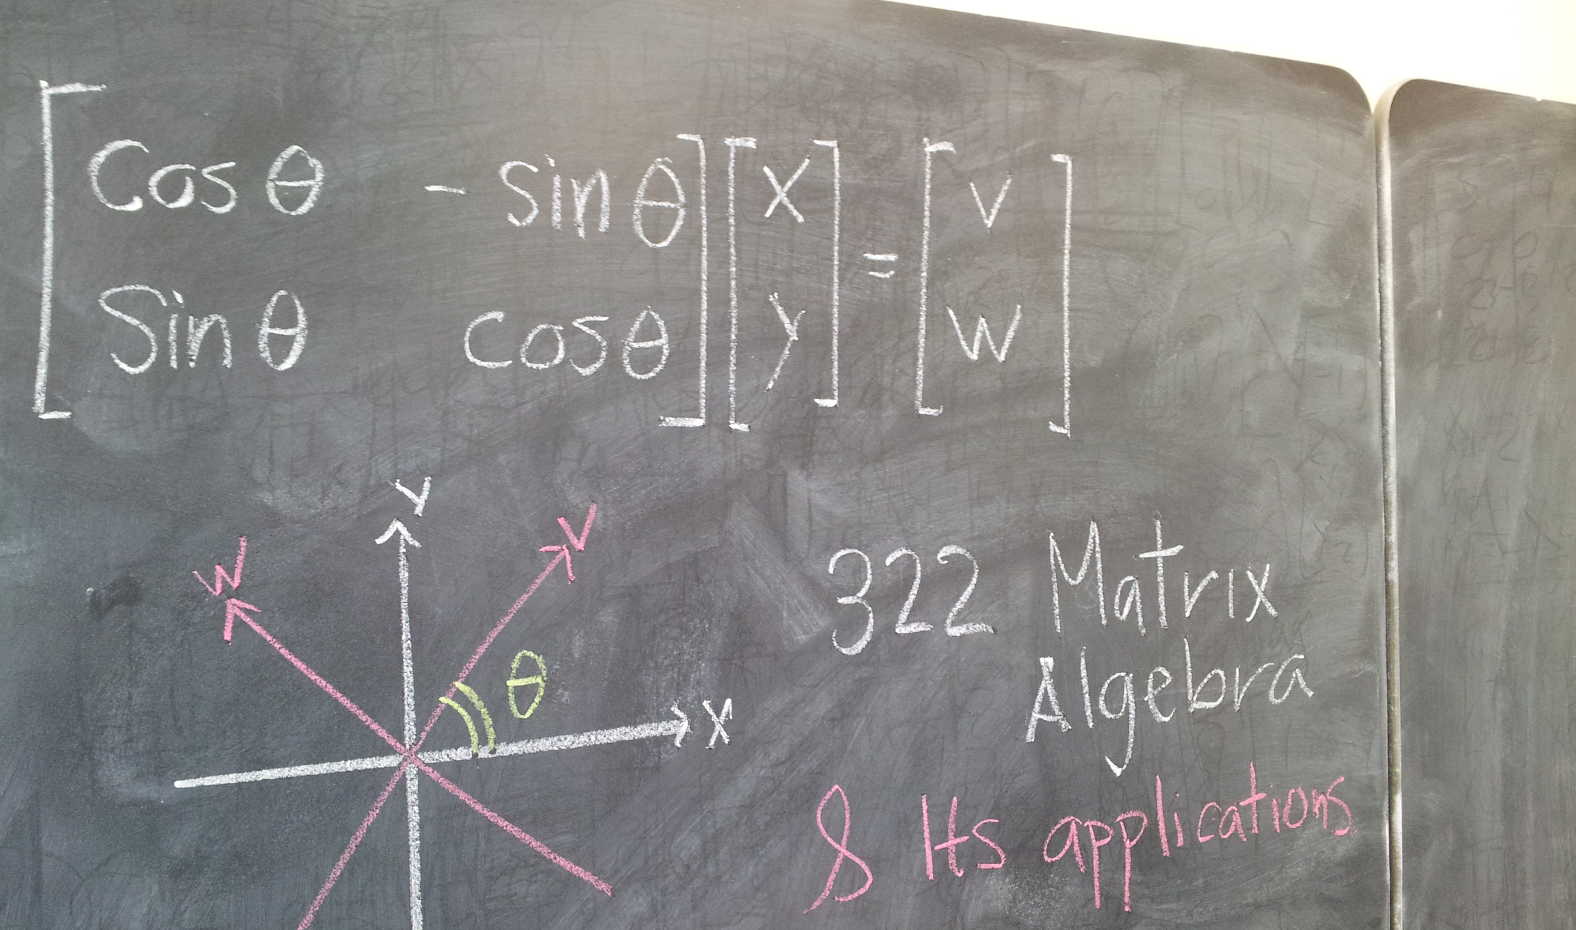 Cos θ - sin θ x = v
Sin θ cos θ y w
y
v
w
θ
x
322 Matrix
Algebra
& Its applications